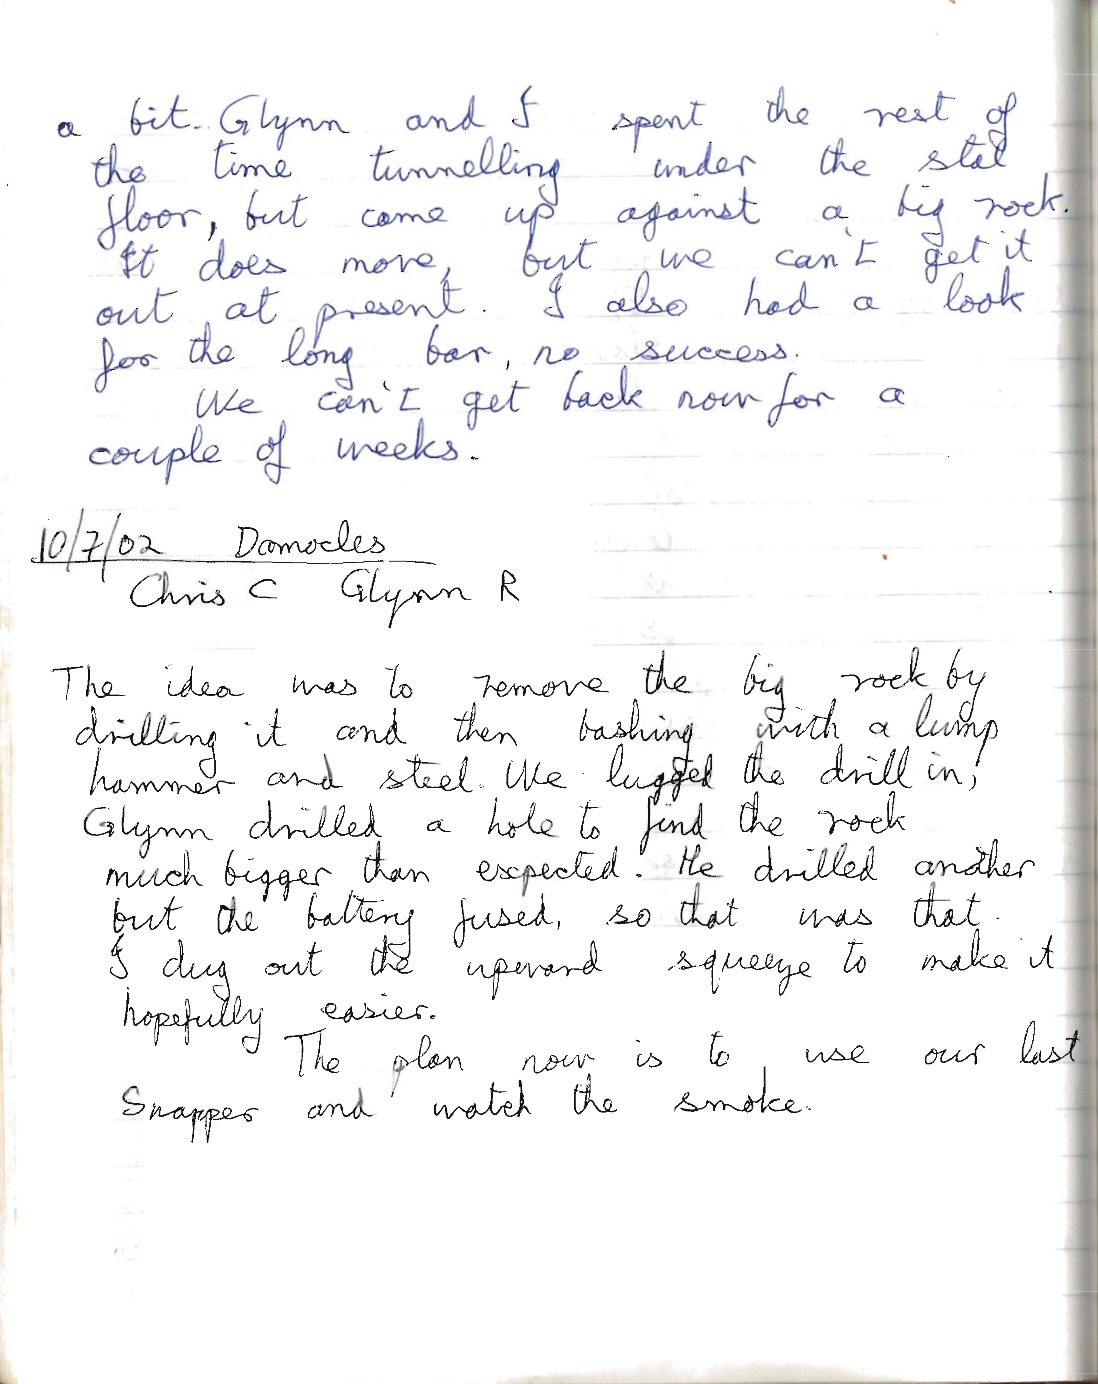 a bit. Glynn and I spent the rest of
the time tunnelling under the stal
floor, but came up against a big rock.
It does move, but we can't get it
out at present. I also had a look
for the long bar, no success.
We can't get back now for a
couple of weeks.
10/7/02 Damocles
Chris C Glynn R
The idea was to remove the big rock by
drilling it and then bashing with a lump
hammer and steel. We lugged the drill in,
Glynn drilled a hole to find the rock
much bigger than expected. He drilled another
but the battery fused, so that was that.
I dug out the upward squeeze to make it
hopefully easier.
The plan now is to use our last
Snapper and watch the smoke.